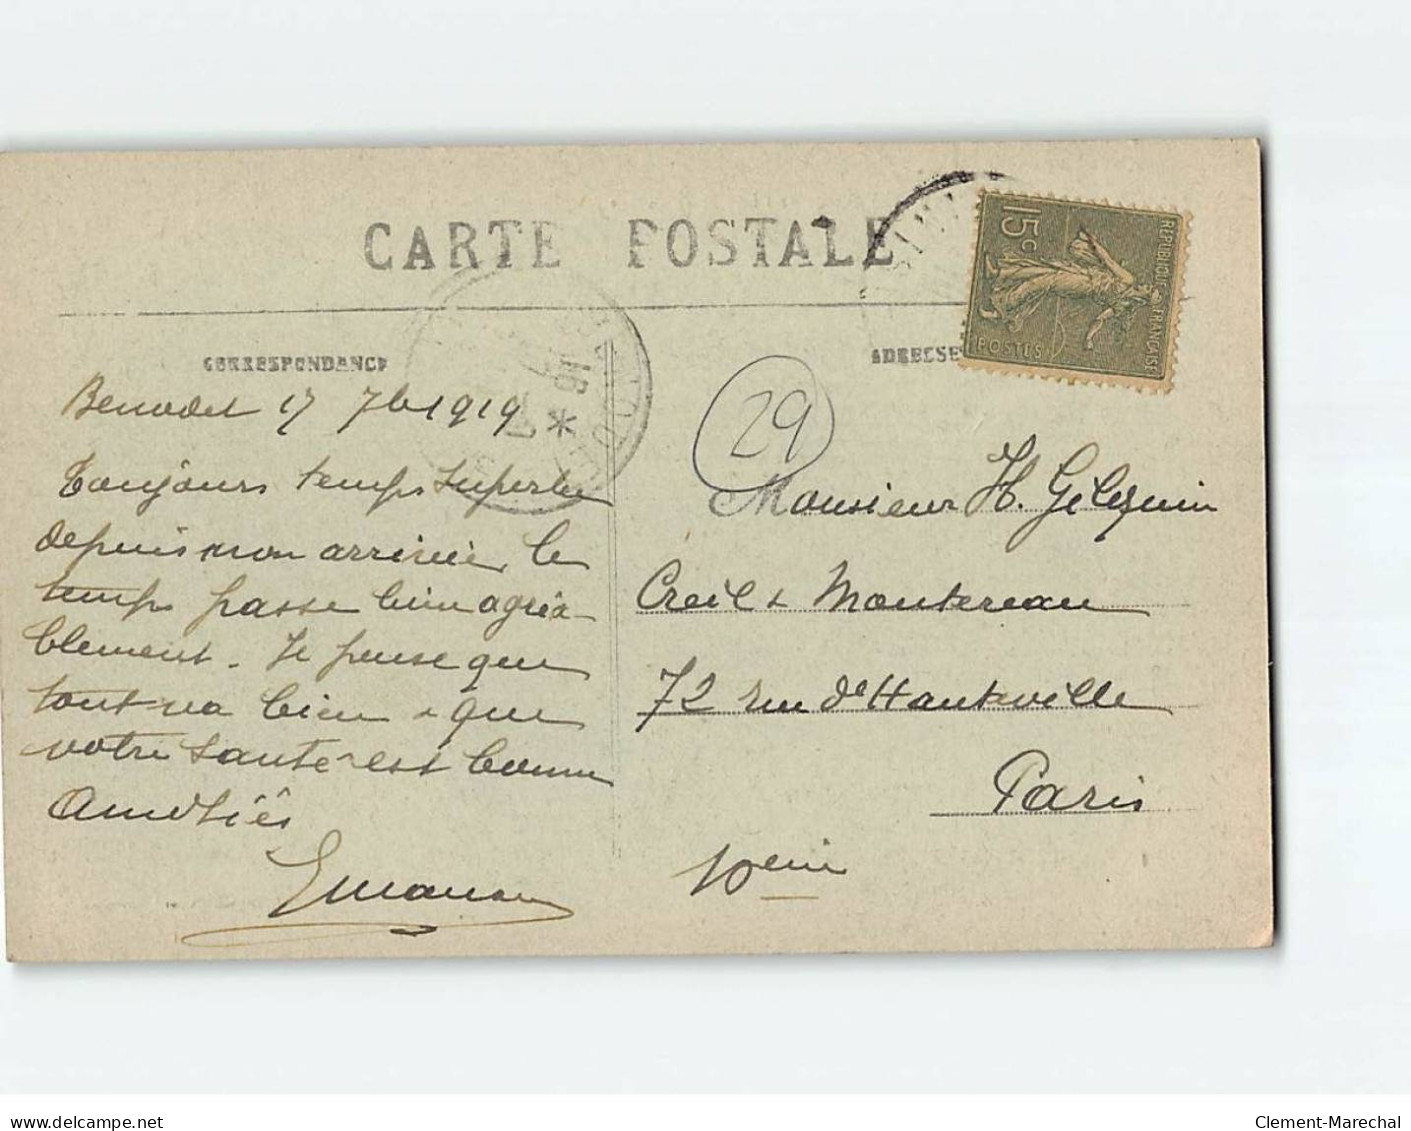 CARTE POSTALE
15c
REPUBLIQUE FRANÇAISE
POSTES
CORRESPONDANCE
ADRESSE
Benodet 17 7b 1919
29
Toujours temps superbe
depuis mon arrivée, le
temps passe bien agréa-
blement. Je pense que
tout va bien & que
votre santé est bonne
Amitiés
Monsieur H. Gilquin
Creil & Montereau
72 rue d'Hauteville
Paris
10eme
Clement-Marechal